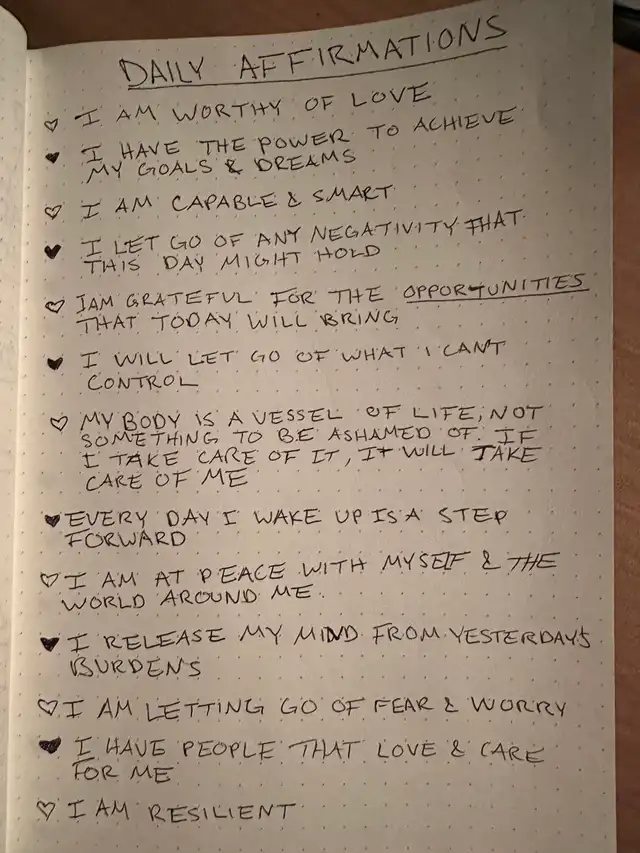 DAILY AFFIRMATIONS
♡ I AM WORTHY OF LOVE
♥ I HAVE THE POWER TO ACHIEVE
MY GOALS & DREAMS
♡ I AM CAPABLE & SMART
♥ I LET GO OF ANY NEGATIVITY THAT
THIS DAY MIGHT HOLD
♡ I AM GRATEFUL FOR THE OPPORTUNITIES
THAT TODAY WILL BRING
♥ I WILL LET GO OF WHAT I CAN'T
CONTROL
♡ MY BODY IS A VESSEL OF LIFE, NOT
SOMETHING TO BE ASHAMED OF. IF
I TAKE CARE OF IT, IT WILL TAKE
CARE OF ME
♥ EVERY DAY I WAKE UP IS A STEP
FORWARD
♡ I AM AT PEACE WITH MYSELF & THE
WORLD AROUND ME.
♥ I RELEASE MY MIND FROM YESTERDAYS
BURDENS
♡ I AM LETTING GO OF FEAR & WORRY
♥ I HAVE PEOPLE THAT LOVE & CARE
FOR ME
♡ I AM RESILIENT